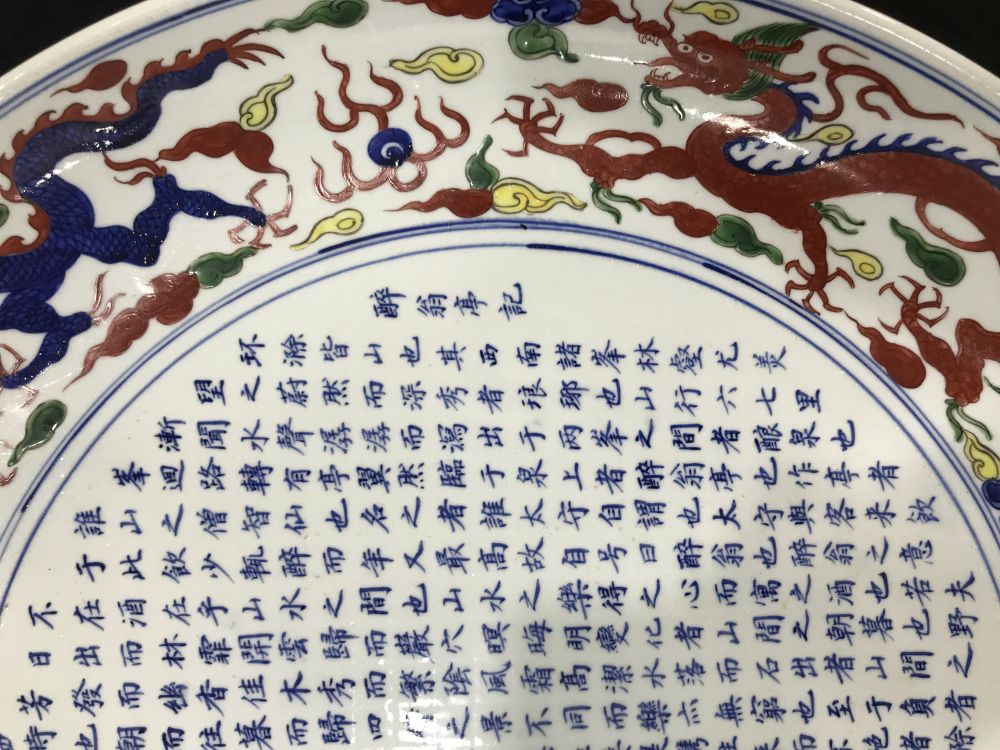 醉翁亭記
环滁皆山也其西南諸峯林壑尤美
望之蔚然而深秀者琅琊也山行六七里
漸聞水聲潺潺而瀉出于兩峯之間者釀泉也
峯迴路轉有亭翼然臨于泉上者醉翁亭也作亭者
誰山之僧智仙也名之者誰太守自謂也太守與客来飲
于此飲少輒醉而年又最高故自号曰醉翁也醉翁之意
不在酒在乎山水之間也山水之樂得之心而寓之酒也若夫
日出而林霏開雲歸而巖穴暝晦明變化者山間之朝暮也野
芳發而幽香佳木秀而繁陰風霜高潔水落而石出者山間之
時也朝而往暮而歸四之景不同而樂亦無窮也至于負者